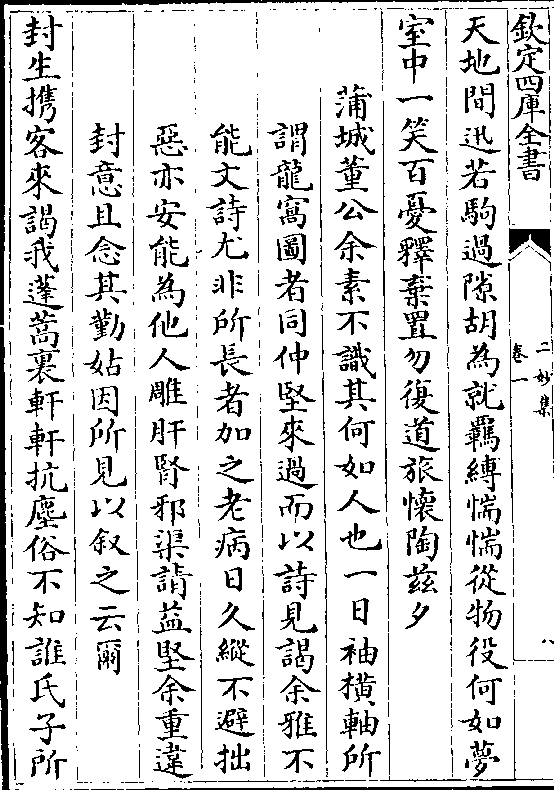 欽定四庫全書
二妙集
卷一
八
天地間迅若駒過隙胡為就羈縛惴惴從物役何如夢
室中一笑百憂釋棄置勿復道旅懷陶茲夕
蒲城董公余素不識其何如人也一日袖橫軸所
謂龍窩圖者同仲堅來過而以詩見謁余雅不
能文詩尤非所長者加之老病日久縱不避拙
惡亦安能為他人雕肝腎邪渠請益堅余重違
封意且念其勤姑因所見以叙之云爾
封生携客來謁我蓬蒿裏軒軒抗塵俗不知誰氏子所